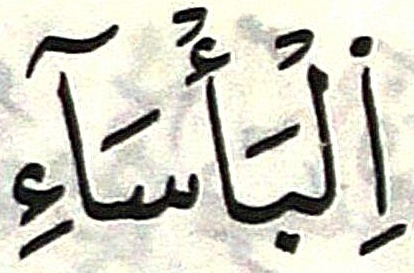 اِ۬لْبَأْسَآءِ